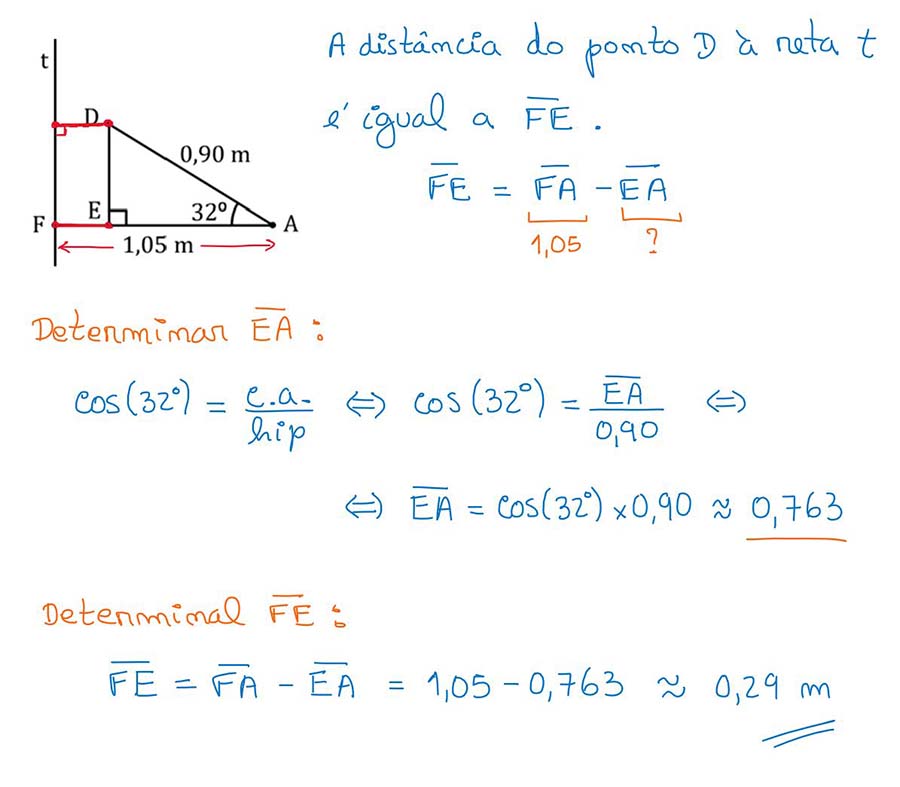 t
D
0,90 m
F
E
32º
A
1,05 m
A distância do ponto D à reta t
é igual a F̅E̅.
F̅E̅ = F̅A̅ - E̅A̅
1,05 ?
Determinar E̅A̅:
cos(32º) = c.a./hip ⇔ cos(32º) = E̅A̅/0,90 ⇔
⇔ E̅A̅ = cos(32º)×0,90 ≈ 0,763
Determinal F̅E̅:
F̅E̅ = F̅A̅ - E̅A̅ = 1,05 - 0,763 ≈ 0,29 m